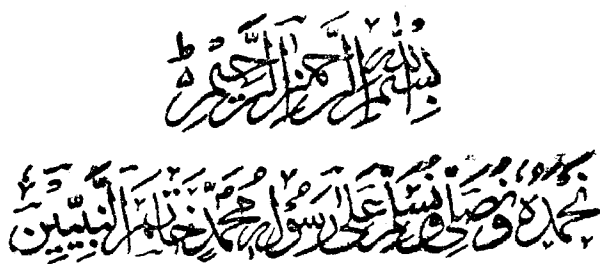 بِسْمِ اللّٰهِ الرَّحْمٰنِ الرَّحِيْمِ ۝ ط
نَحْمَدُهٗ وَنُصَلِّيْ وَنُسَلِّمُ عَلٰى رَسُوْلِهٖ مُحَمَّدٍ خَاتَمِ النَّبِيِّيْنَ